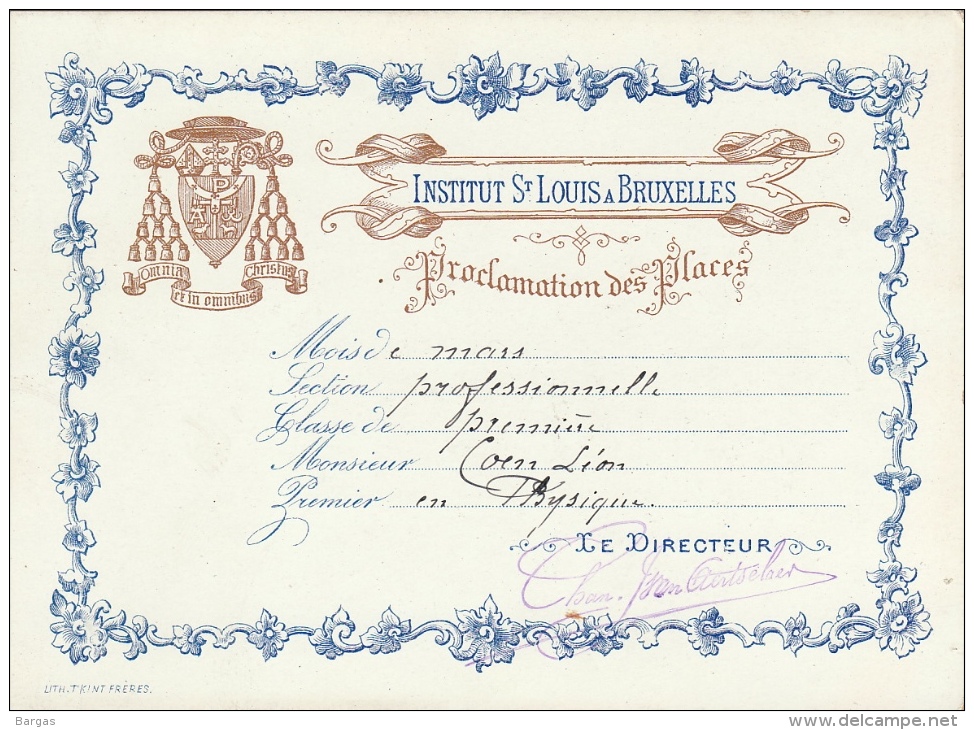 Omnia Christus
et in omnibus
INSTITUT ST LOUIS A BRUXELLES
Proclamation des Places
Mois de mars
Section professionnelle
Classe de première
Monsieur Coen Léon
Premier en Physique.
LE DIRECTEUR
Chan. Van Aertselaer
LITH. T'KINT FRÈRES.
Bargas
www.delcampe.net